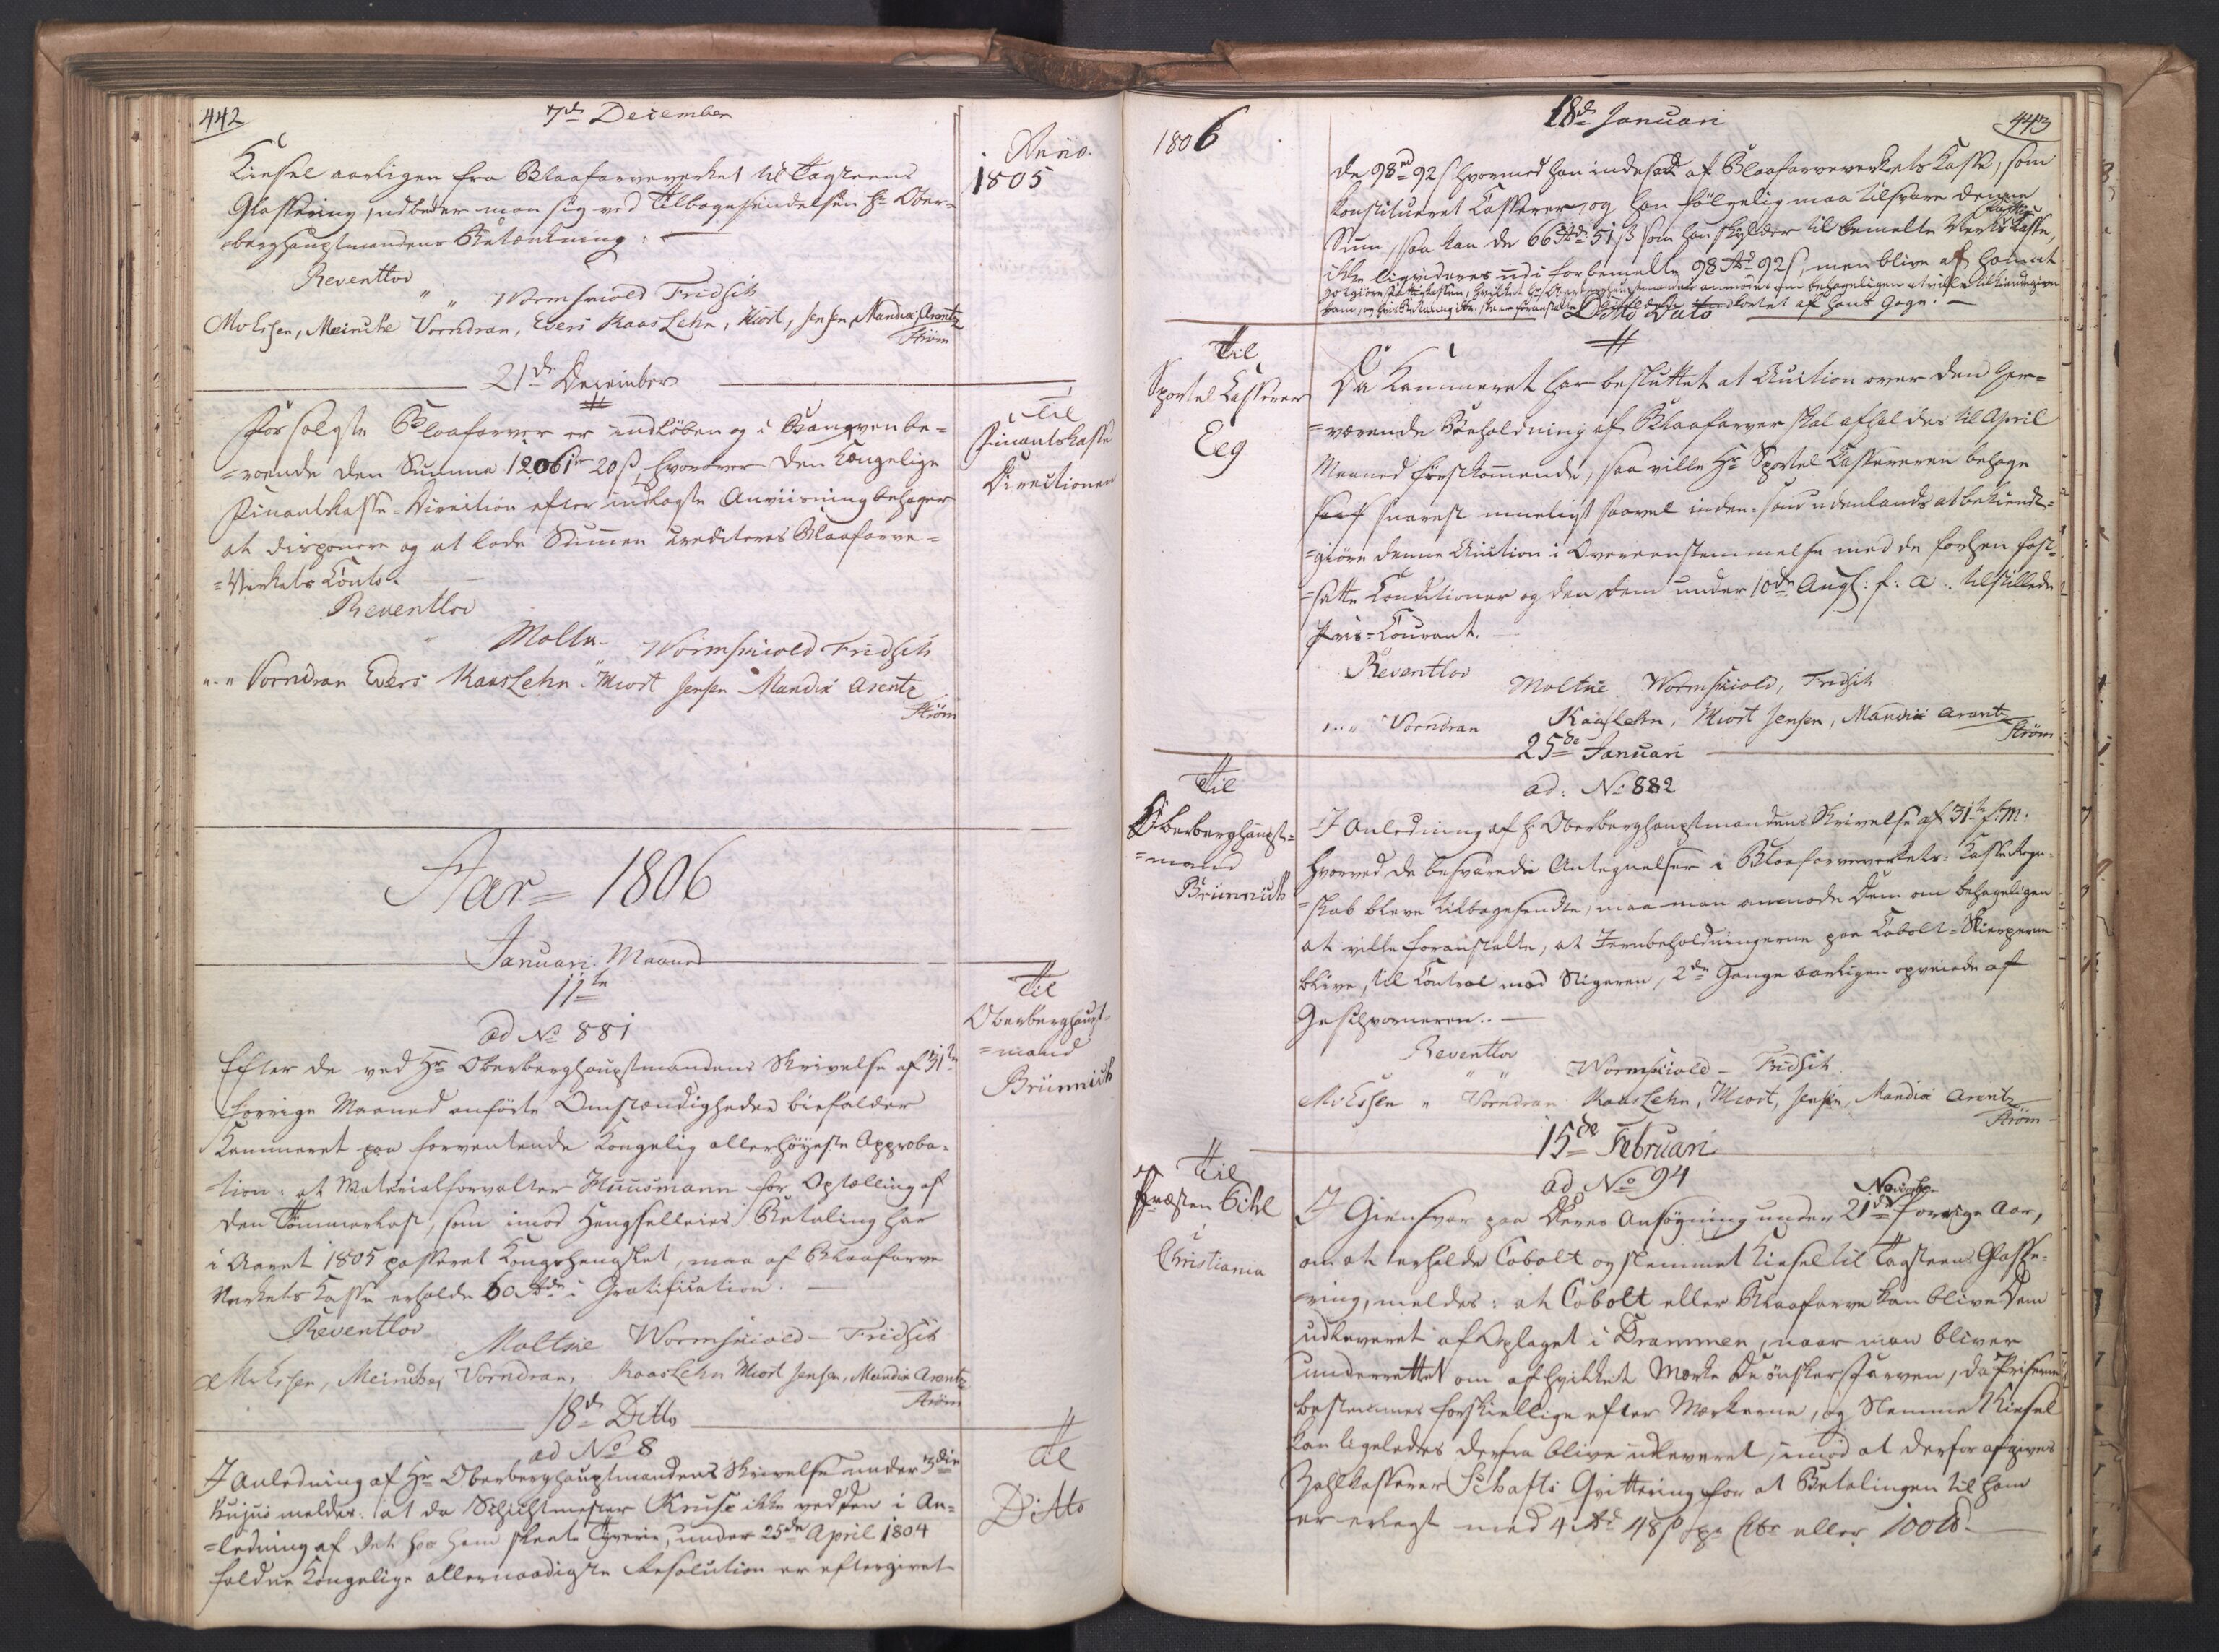 442
7de December
Anno.
1805
Kiesel aarligen fra Blaafarveverket til Tagsteens
Glassering, udbeder man sig ved Tilbagesendelsen Hr Ober-
berghauptmandens Betænkning.
Reventlov
" " Wormskiold Fridsch
MvEssen, Meincke Vorndran, Evers KaasLehn, Hiort, Jensen, Mandix, Arentz
Strøm
21de December
Til
Finantskasse
Directionen
For solgte Blaafarver er indløben og i Banqven be-
=roende den Summa 12061 rd 20 ß, hvorover den Kongelige
Finantskasse-Direction efter indlagte Anviisning behager
at disponere og at lade Summen creditere Blaafarve-
=Verkets Conto.
Reventlov
Moltke Wormskiold Fridsch
" " Vorndran Evers KaasLehn Hiort Jensen Mandix Arentz
Strøm
Aar = 1806
Januari Maaned
11te
ad No 881
Til
Oberberghaupt-
=mand
Brünnich
Efter de ved Hr Oberberghauptmandens Skrivelse af 31te
forrige Maaned anførte Omstændigheder bifalder
Kammeret paa forventende Kongelig allerhøyeste Approba-
tion: at Materialforvalter Huusmann for Optælling af
den Tømmerlast, som imod Hengselleies Betaling har
i Aaret 1805 passeret Kongshengslet, maa af Blaafarve
Verkets Kasse erholde 60 Rdr i Gratification.
Reventlov
Moltke Wormskiold - Fridsch
MvEssen, Meincke, Vorndran, KaasLehn Hiort Jensen, Mandix Arentz
Strøm
18de Ditto
ad No 8
Til
Ditto
I Anledning af Hr Oberberghauptmandens Skrivelse under 3die
hujus meldes: at da Schichtmester Kruse ikke ved den i An-
=ledning af det hos ham skeete Tyverie, under 25de April 1804
faldne Kongelige allernaadigste Resolution er eftergivet
1806
18de Januari
443
de 98 rd 92 ß hvormed han indestod af Blaafarveverkets Kasse, som
konstitueret Casserer, og han følgelig maa tilsvare denne
Sum, saa kan de 66 Rd 51 ß som han skylder til bemelte Verks Kasse,
ikke liqvideres udi forbemelte 98 Rd 92 ß, men blive af ham at
Ditto Dato
kortet af hans Gage.
Til
Sportel Casserer
Eeg
Da Kammeret har besluttet at Auction over den her-
=værende Beholdning af Blaafarver skal afholdes til April
Maaned førstkommende, saa ville Hr Sportel Cassereren behage
snarest mueligt saavel inden- som udenlands at bekiendt-
=giøre denne Auction i Overeensstemmelse med de forhen fast-
=satte Conditioner og den Dem under 10de Augs: f: A: tilstillede
Pris-Courant.
Reventlov
Moltke Wormskiold, Fridsch
" " Vorndran KaasLehn, Hiort Jensen, Mandix Arentz
Strøm
25de Januari
ad: No 882
Til
Oberberghaupt-
=mand
Brünnich
I Anledning af Hr Oberberghauptmandens Skrivelse af 31te f: M:
hvorved de besvarede Antegnelser i Blaafarveverkets Kasse Regn-
=skab bleve tilbagesendte, maa man anmode Dem om behageligen
at ville foranstalte, at Jernbeholdningerne paa Cobolt-Skierperne
blive, til Control med Stigeren, 2de Gange aarligen opveiede af
Geschworneren.
Reventlov
" " Wormskiold - Fridsch
MvEssen " Vorndran KaasLehn, Hiort, Jensen, Mandix Arentz
Strøm
15de Februari
ad No 94
Til
Præsten Gihl
i
Christiania
I Giensvar paa Deres Ansøgning under 21de November forrige Aar,
om at erholde Cobolt og slemmet Kiesel til Tagsteens Glasse-
ring, meldes: at Cobolt eller Blaafarve kan blive Dem
udleveret af Oplaget i Drammen, naar man bliver
underrettet om af hvilket Mærke De ønsker Farven, da Priserne
bestemmes forskiellige efter Mærkerne, og Slemme Kiesel
kan ligeledes derfra blive udleveret, imod at derfor afgives
Zahlkasserer Schafts Qvittering for at Betalingen til ham
er erlagt med 4 Rd 48 ß pr Ctr eller 100 ℔.